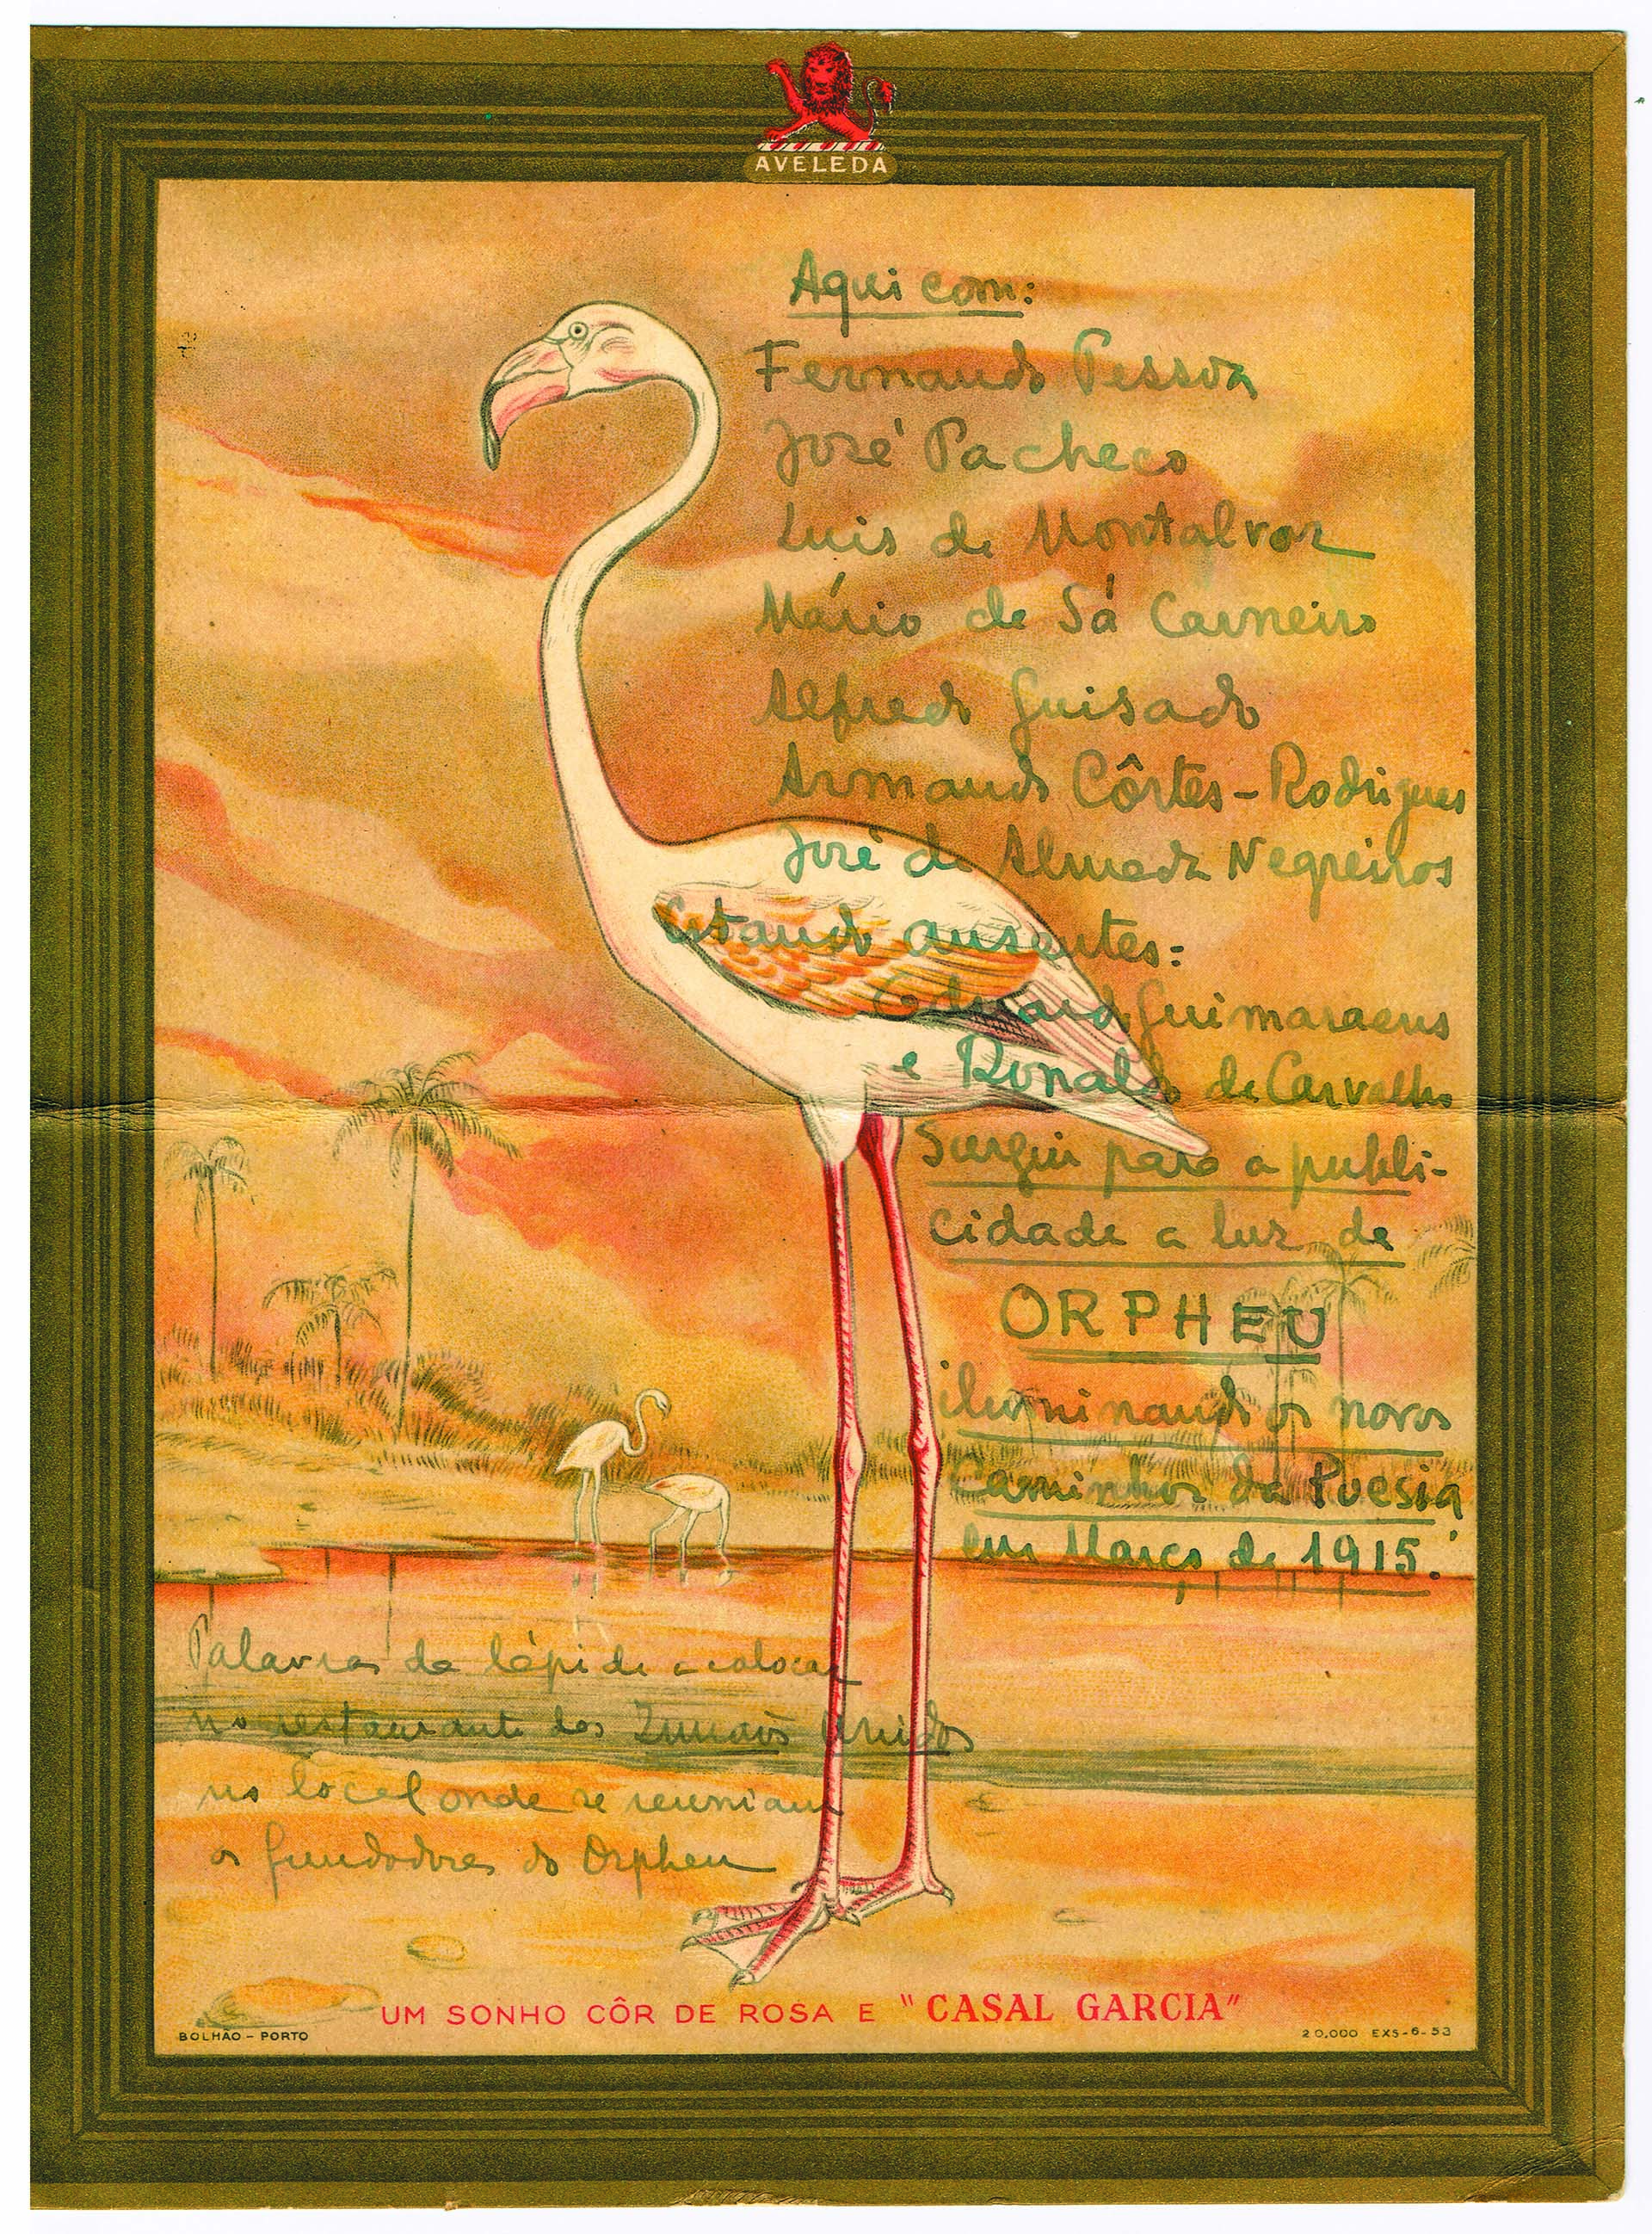 AVELEDA
Aqui com:
Fernando Pessoa
José Pacheco
Luis de Montalvor
Mário de Sá Carneiro
Alfredo Guisado
Armando Côrtes-Rodrigues
José de Almada Negreiros
Estando ausentes:
Eduardo Guimaraens
e Ronald de Carvalho
Surgiu para a publi-
cidade a luz de
ORPHEU
iluminando os novos
Caminhos da Poesia
em Março de 1915.
Palavras da lápide a colocar
no restaurante dos Irmãos Unidos
no local onde se reuniam
os fundadores do Orpheu
UM SONHO CÔR DE ROSA E "CASAL GARCIA"
BOLHÃO - PORTO
20,000 EXS-6-53